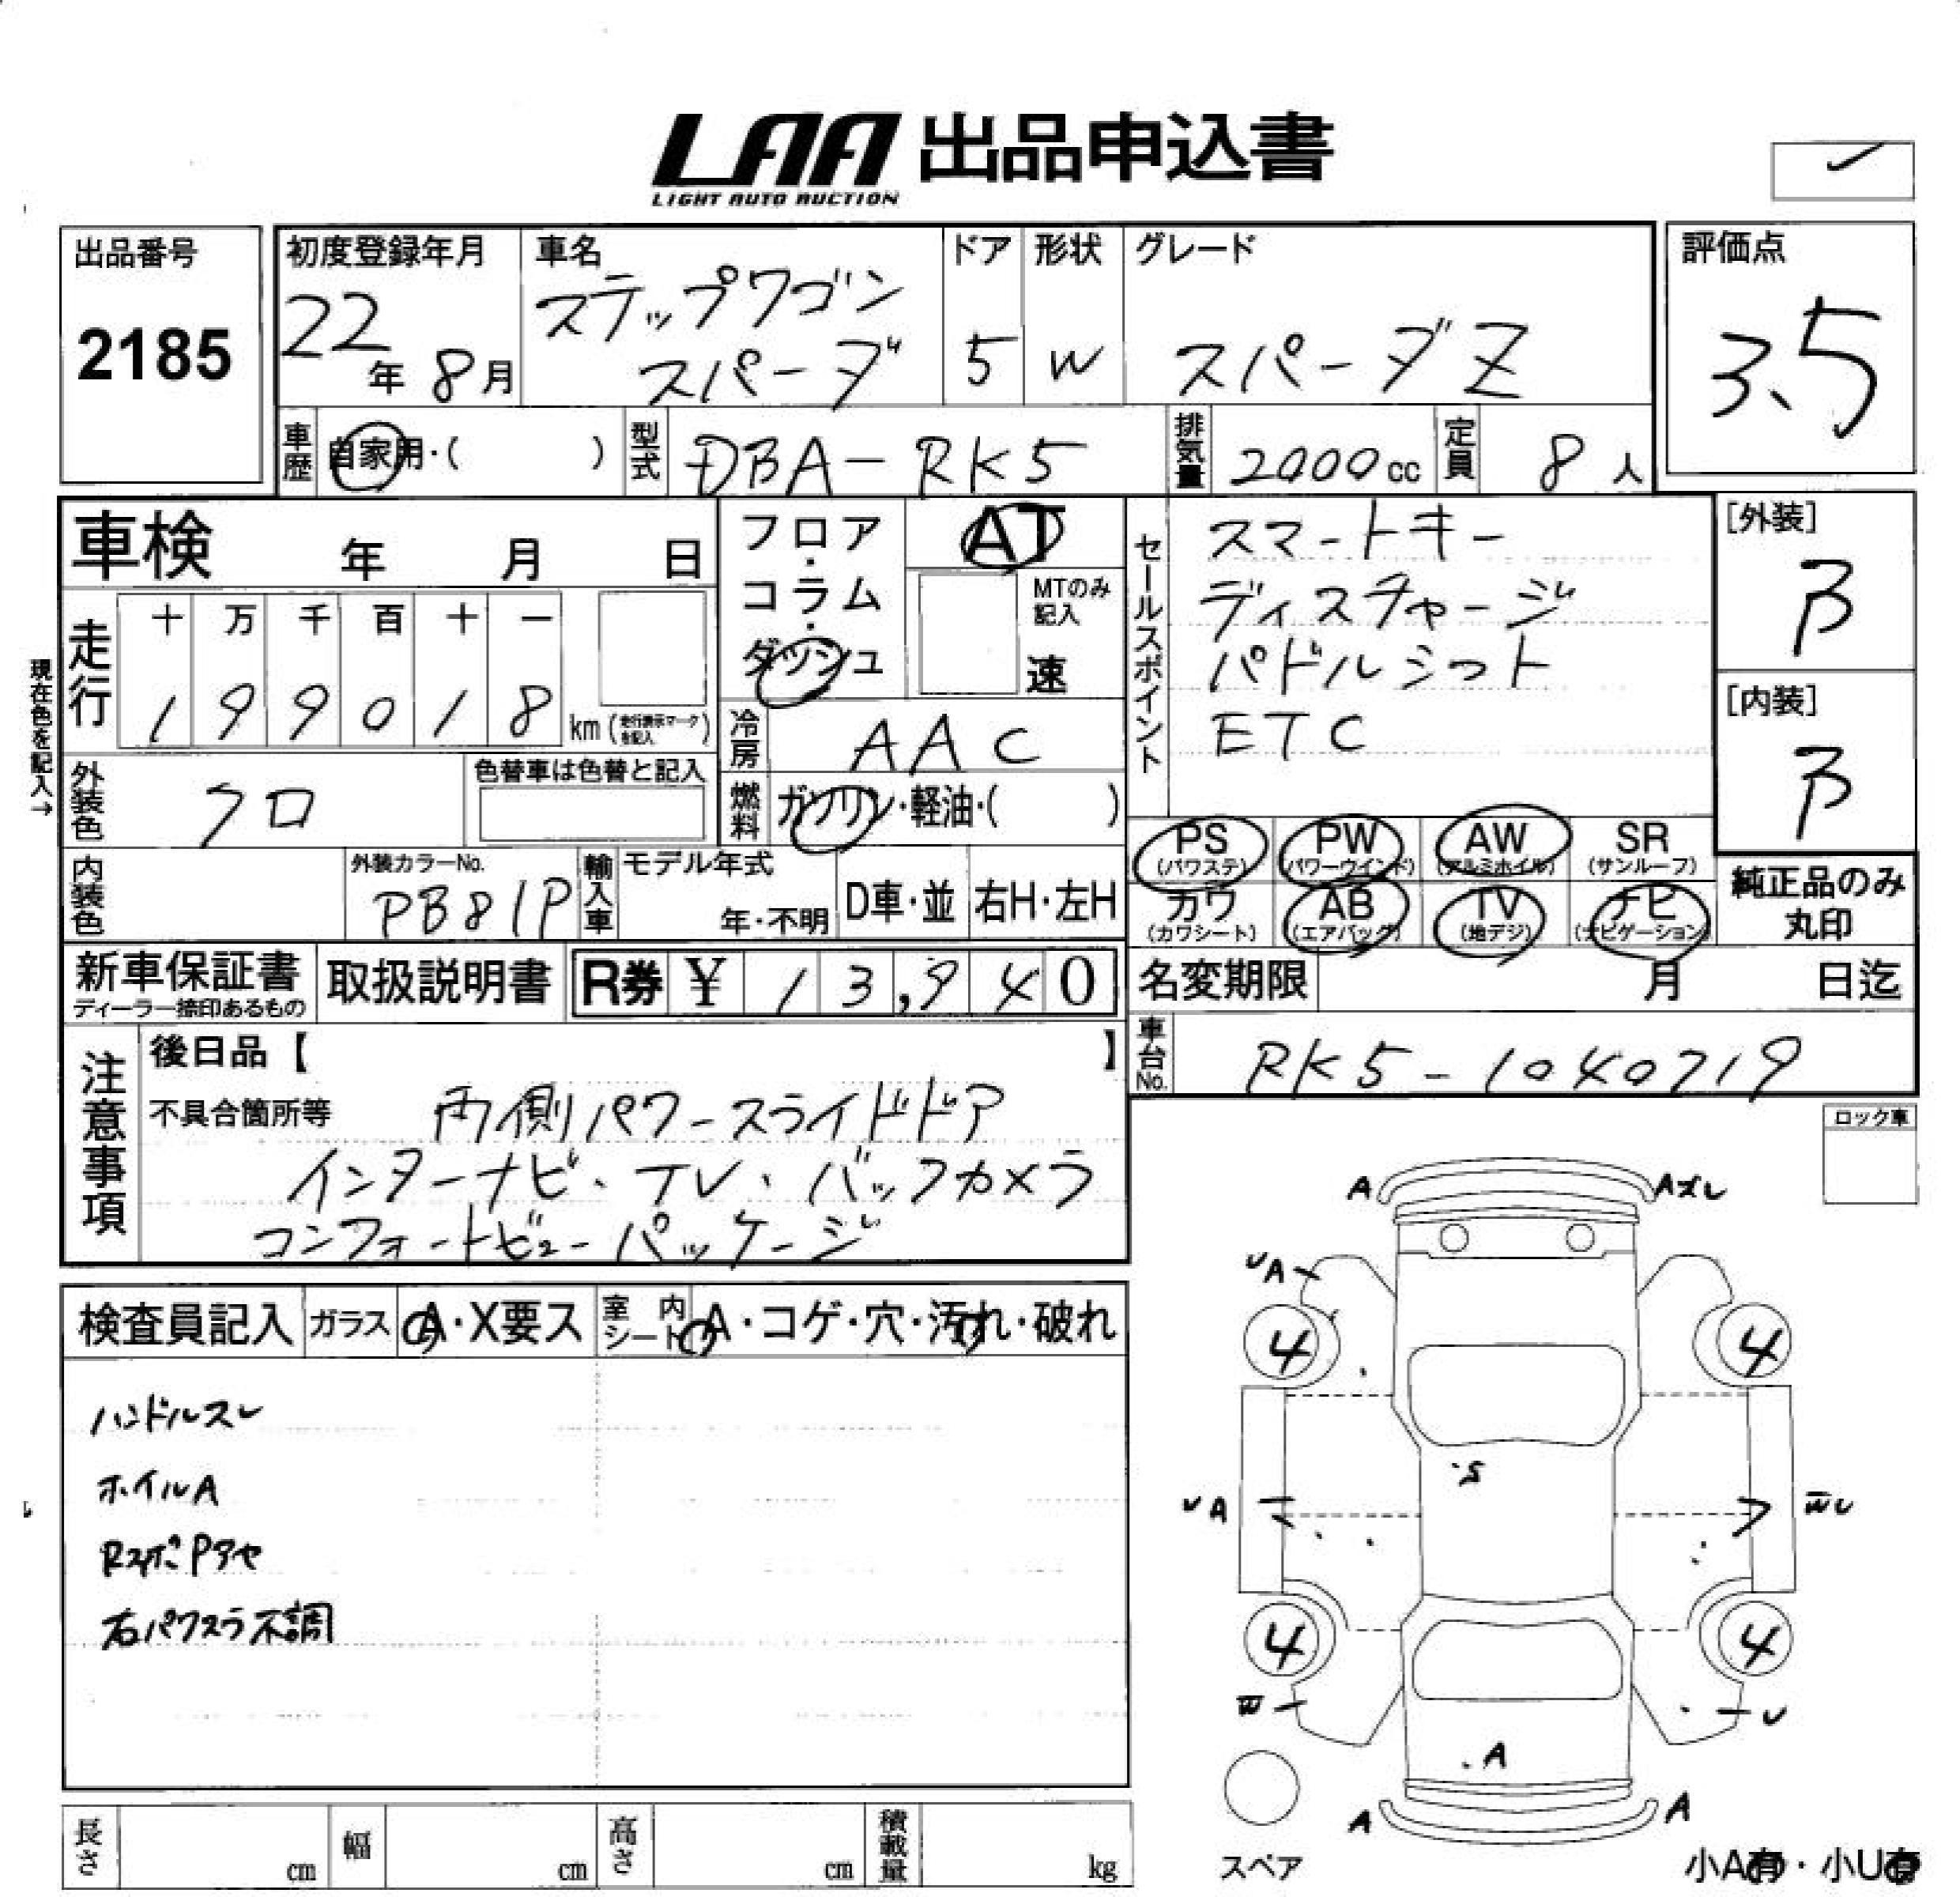 LAA 出品申込書
LIGHT AUTO AUCTION
出品番号
2185
初度登録年月
22年 8月
車名
ステップワゴン
スパーダ
ドア
5
形状
W
グレード
スパーダZ
評価点
3.5
車歴
自家用・( )
型式
DBA-RK5
排気量
2000cc
定員
8人
車検 年 月 日
フロア・コラム・ダッシュ
AT
MTのみ記入
速
セールスポイント
スマートキー
ディスチャージ
パドルシフト
ETC
[外装]
B
[内装]
B
現在色を記入→
走行
十 万 千 百 十 一
1 9 9 0 1 8 km (走行表示マークを記入)
冷房
AAC
外装色
クロ
色替車は色替と記入
燃料
ガソリン・軽油・( )
PS (パワステ)
PW (パワーウインド)
AW (アルミホイル)
SR (サンルーフ)
カワ (カワシート)
AB (エアバッグ)
TV (地デジ)
ナビ (ナビゲーション)
純正品のみ
丸印
内装色
外装カラーNo.
PB81P
輸入車
モデル年式
年・不明
D車・並
右H・左H
新車保証書
ディーラー捺印あるもの
取扱説明書
R券 ¥ 13,940
名変期限 月 日迄
車台No.
RK5-1040719
注意事項
後日品【 】
不具合箇所等
両側パワースライドドア
インターナビ・TV・バックカメラ
コンフォートビューパッケージ
ロック車
検査員記入
ガラス
A・X要ス
室内シート
A・コゲ・穴・汚れ・破れ
ハンドルスレ
ホイルA
右パワスラ不調
A
UA
4
4
S
UA
4
4
U
A
A
A
スペア
長さ cm
幅 cm
高さ cm
積載量 kg
小A有・小U有